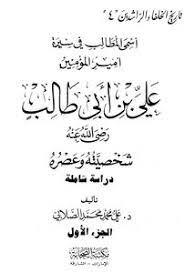 تاريخ الخلفاء الراشدين «٤»
أسمى المطالب في سيرة
أمير المؤمنين
علي بن أبي طالب
رضي الله عنه
شخصيته وعصره
دراسة شاملة
تأليف
د. علي محمد محمد الصلابي
الجزء الأول
مكتبة الصحابة
الإمارات - الشارقة